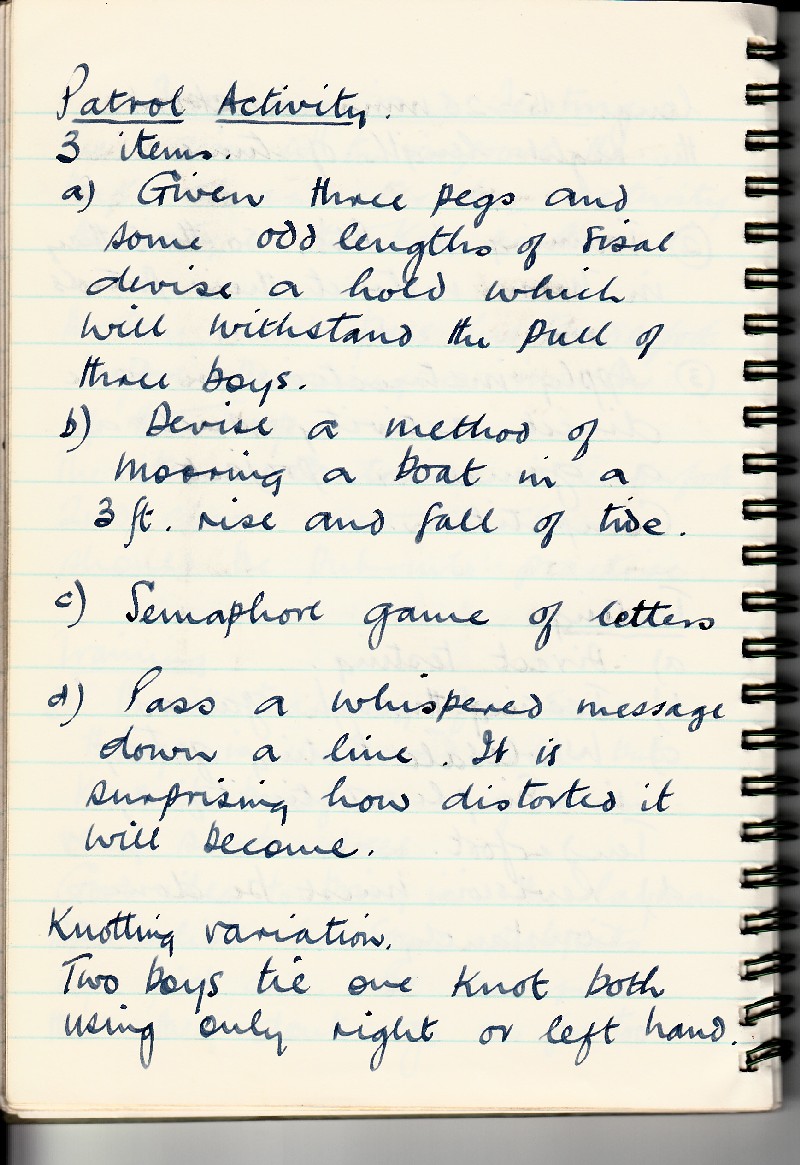 Patrol Activity.
3 items.
a) Given three pegs and
some odd lengths of sisal
devise a hold which
will withstand the pull of
three boys.
b) Devise a method of
mooring a boat in a
3 ft. rise and fall of tide.
c) Semaphore game of letters
d) Pass a whispered message
down a line. It is
surprising how distorted it
will become.
Knotting variation.
Two boys tie one knot both
using only right or left hand.